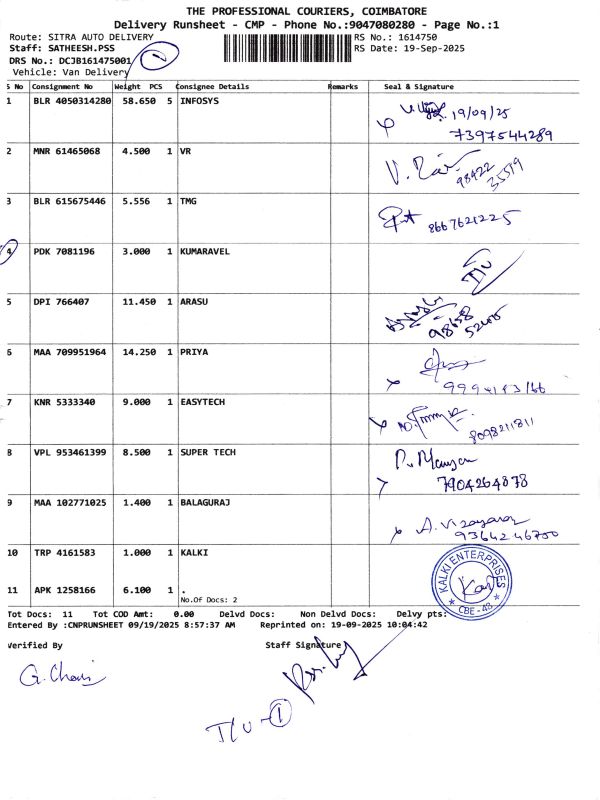 THE PROFESSIONAL COURIERS, COIMBATORE
Delivery Runsheet - CMP - Phone No.:9047080280 - Page No.:1
Route: SITRA AUTO DELIVERY RS No.: 1614750
Staff: SATHEESH.PSS RS Date: 19-Sep-2025
DRS No.: DCJB161475001
Vehicle: Van Delivery
S No Consignment No Weight PCS Consignee Details Remarks Seal & Signature
1 BLR 4050314280 58.650 5 INFOSYS 19/09/25
7397544289
2 MNR 61465068 4.500 1 VR
98422
35519
3 BLR 615675446 5.556 1 TMG
8667621225
4 PDK 7081196 3.000 1 KUMARAVEL I/U
5 DPI 766407 11.450 1 ARASU
98658
52405
6 MAA 709951964 14.250 1 PRIYA
7 KNR 5333340 9.000 1 EASYTECH
8098211811
8 VPL 953461399 8.500 1 SUPER TECH
7904264878
9 MAA 102771025 1.400 1 BALAGURAJ
9364246700
10 TRP 4161583 1.000 1 KALKI
KALKI ENTERPRISES
CBE-48
11 APK 1258166 6.100 1 .
No.Of Docs: 2
Tot Docs: 11 Tot COD Amt: 0.00 Delvd Docs: Non Delvd Docs: Delvy pts:
Entered By :CNPRUNSHEET 09/19/2025 8:57:37 AM Reprinted on: 19-09-2025 10:04:42
Verified By Staff Signature
I/U - 1